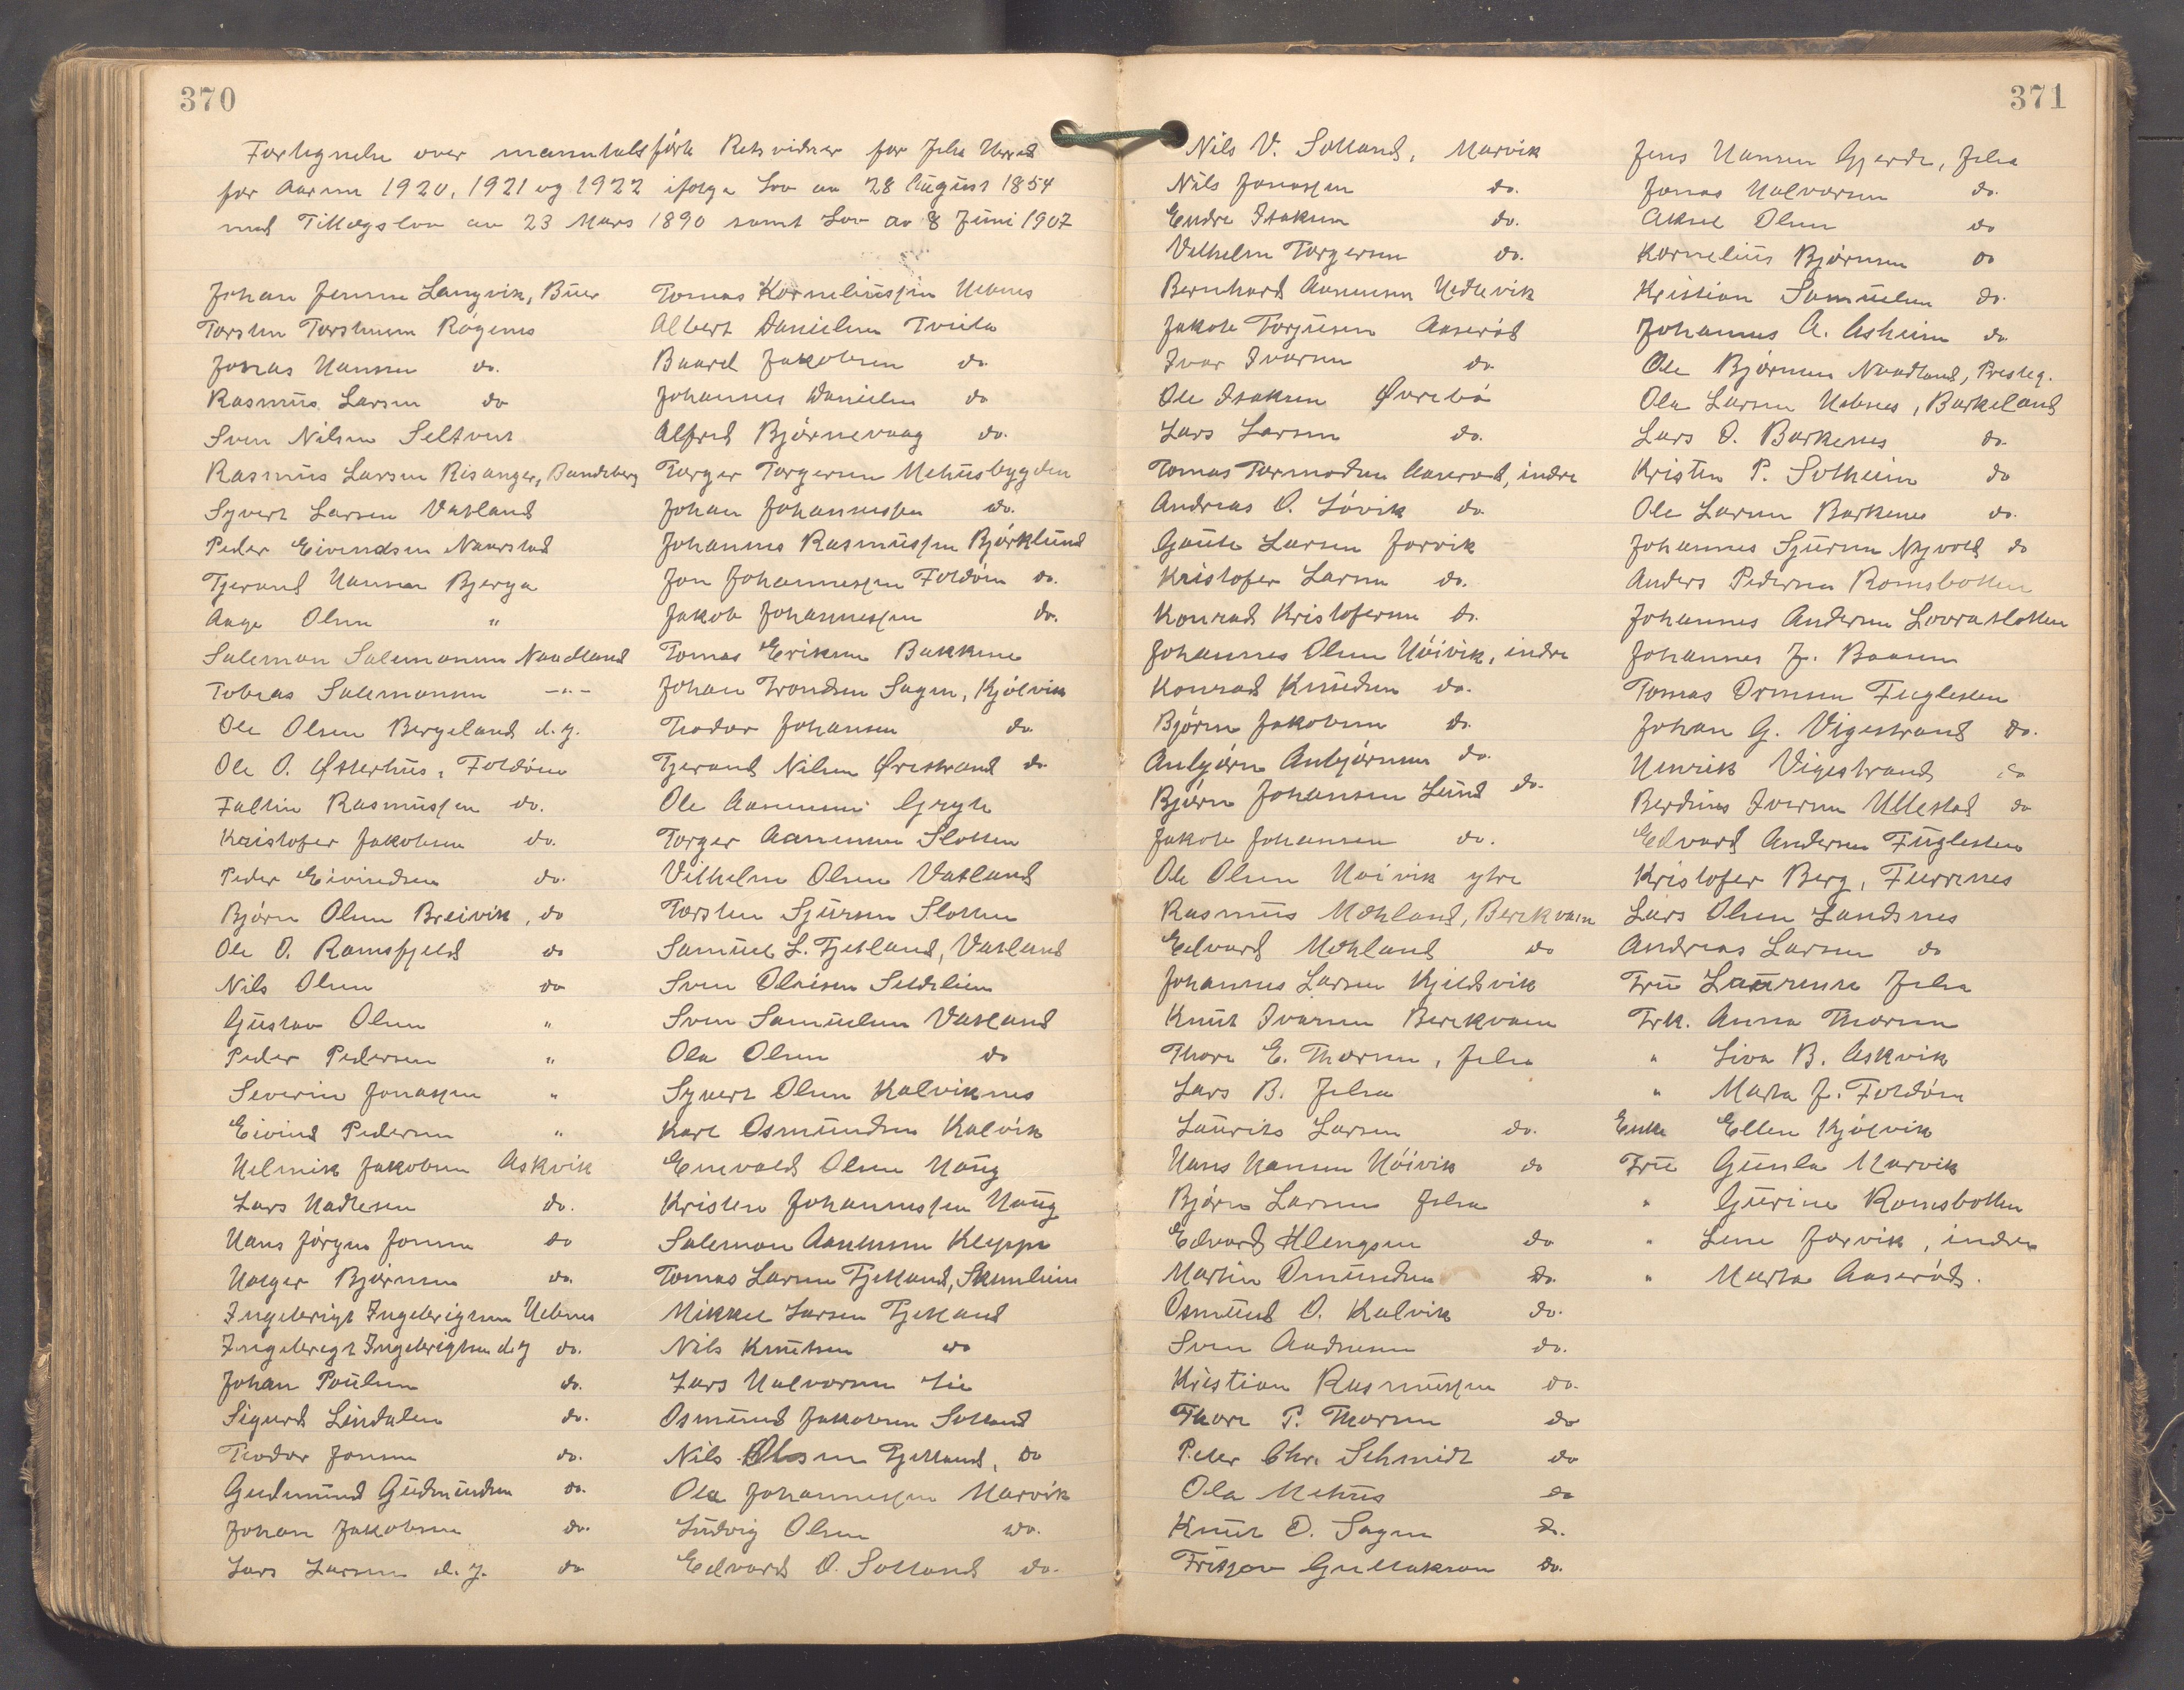 370
Fortegnelse over manntalsførte Retsvidner for Jelsa Herred
for Aarene 1920, 1921 og 1922 ifølge Lov av 28 August 1854
med Tillægslov av 23 Mars 1890 samt Lov av 8 Juni 1907
Johan Jensen Langvik, Buer
Torsten Torstensen Røgenes
Jonas Hansen do.
Rasmus Larsen do
Sven Nilsen Seltveit
Rasmus Larsen Risanger, Bandeberg
Syvert Larsen Vatland
Peder Eivendsen Naarstad
Tjerand Hansen Bjerga
Aage Olsen "
Salemon Salemonsen Naadland
Tobias Salemonsen -"-
Ole Olsen Bergeland d.y.
Ole O. Østerhus, Foldøen
Faltin Rasmussen do.
Kristofer Jakobsen do.
Peder Eivindsen do.
Bjørn Olsen Breivik, do
Ole O. Ramsfjeld do
Nils Olsen do
Gustav Olsen "
Peder Pedersen "
Severin Jonassen "
Eivind Pedersen "
Helmik Jakobsen Askvik
Lars Hadlesen do.
Hans Jørgen Jonsen do
Holger Bjørnsen do.
Ingebrigt Ingebrigtsen Hebnes
Ingebrigt Ingebrigtsen d.y do.
Johan Poulsen do.
Sigurd Lindalen do.
Teodor Jonsen do.
Gudmund Gudmundsen do.
Johan Jakobsen do.
Lars Larsen d.y. do
Tomas Korneliussen Hebnes
Albert Danielsen Tveita
Baard Jakobsen do.
Johannes Danielsen do
Alfred Bjørnevaag do.
Torger Torgersen Mehusbygden
Johan Johannessen do.
Johannes Rasmussen Bjørklund
Jon Johannessen Foldøen do.
Jakob Johannessen do.
Tomas Eriksen Bakkene
Johan Trondsen Sagen, Kjølvik
Teodor Johansen do
Tjerand Nilsen Ørestrand do
Ole Aanensen Gryte
Torger Aanensen Slotten
Vilhelm Olsen Vatland
Torsten Sjursen Slotten
Samuel L. Tjetland, Vatland
Sven Olaisen Seldeleim
Sven Samuelsen Vatland
Ola Olsen do
Syvert Olsen Kalviknes
Karl Osmundsen Kalvik
Enevald Olsen Haug
Kristen Johannessen Haug
Salemon Aanensen Kleppe
Tomas Larsen Tjetland, Skeulheim
Mikkel Larsen Tjetland
Nils Knutsen do
Lars Halvorsen Lie
Osmund Jakobsen Solland
Nils Olsen Tjetland, do
Ola Johannessen Marvik
Ludvig Olsen do.
Edvard O. Solland do.
371
Nils V. Solland, Marvik
Nils Jonassen do.
Endre Isaksen do.
Vilhelm Torgersen do.
Bernhard Aanensen Hedlevik
Jakob Torjusen Aaserød
Ivar Ivarsen do
Ole Isaksen Øvrebø
Lars Larsen do.
Tomas Tormodsen Aaserød, indre
Andreas O. Løvik do
Gaute Larsen Jørvik
Kristofer Larsen do.
Konrad Kristofersen do.
Johannes Olsen Høivik, indre
Konrad Knudsen do.
Bjørn Jakobsen do.
Anbjørn Anbjørnsen do.
Bjørn Johansen Lund do.
Jakob Johansen do.
Ole Olsen Høivik ytre
Rasmus Mehland, Berekvam
Edvard Mehland do
Johannes Larsen Kjeldsvik
Knut Ivarsen Berekvam
Thore E. Thorsen, Jelsa
Lars B. Jelsa
Laurits Larsen do.
Hans Hansen Høivik do
Bjørn Larsen Jelsa
Edvard Klengsen do
Martin Osmundsen do.
Osmund O. Kalvik do.
Sven Andresen do.
Kristian Rasmussen do.
Thore P. Thorsen do
Peter Chr. Schmidt do
Ola Mehus do
Knut O. Sagen do.
Fritjov Gullakson do.
Jens Hansen Gjerde, Jelsa
Jonas Halvorsen do.
Aksel Olsen do
Kornelius Bjørnsen do
Kristian Samuelsen do.
Johannes A. Asheim do
Ole Bjørnsen Naadland, Presteg.
Ola Larsen Hebnes, Barkeland
Lars O. Barkenes do.
Kristen P. Solheim do
Ole Larsen Barkenes do.
Johannes Sjursen Nyvold do
Anders Pedersen Romsbotten
Johannes Andersen Lovraslotten
Johannes J. Baasen
Tomas Ormsen Fuglesten
Johan G. Vigestrand do.
Henrik Vigestrand do
Berdines Iversen Ullestad do
Edvard Andersen Fuglesten
Kristofer Berg, Furrenes
Lars Olsen Landsnes
Andreas Larsen do
Fru Laurense Jelsa
Frk. Anna Thorsen
" Liva B. Askvik
" Marta J. Foldøen
Enke Ellen Kjølvik
Fru Gunla Marvik
" Gurine Romsbotten
" Lene Jørvik, indre
" Marta Aaserød.